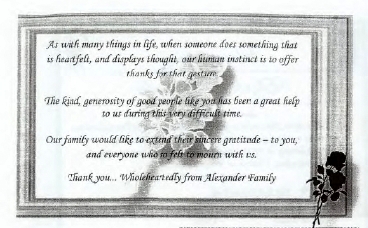 As with many things in life, when someone does something that
is heartfelt, and displays thought, our human instinct is to offer
thanks for that gesture.
The kind, generosity of good people like you has been a great help
to us during this very difficult time.
Our family would like to extend their sincere gratitude – to you,
and everyone who felt to mourn with us.
Thank you... Wholeheartedly from Alexander Family